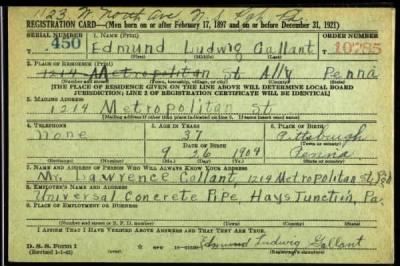 123 W North Ave
REGISTRATION CARD—(Men born on or after February 17, 1897 and on or before December 31, 1921)
SERIAL NUMBER 1. NAME (Print) ORDER NUMBER
450 Edmund Ludwig Gallant 10785
(First) (Middle) (Last)
2. PLACE OF RESIDENCE (Print)
1214 Metropolitan St Ally Penna
(Number and street) (Town) (County) (State)
[THE PLACE OF RESIDENCE GIVEN ON THE LINE ABOVE WILL DETERMINE LOCAL BOARD
JURISDICTION; LINE 2 OF REGISTRATION CERTIFICATE WILL BE IDENTICAL]
3. MAILING ADDRESS
1214 Metropolitan St
[Mailing address if other than place indicated on line 2. If same insert word same]
4. TELEPHONE 5. AGE IN YEARS 6. PLACE OF BIRTH
None 37 Pittsburgh
DATE OF BIRTH (Town or county)
9 26 1904 Penna
(Mo.) (Day) (Yr.) (State or country)
7. NAME AND ADDRESS OF PERSON WHO WILL ALWAYS KNOW YOUR ADDRESS
Mr. Lawrence Gallant, 1214 Metropolitan St
8. EMPLOYER'S NAME AND ADDRESS
Universal Concrete Pipe, Hays Junction, Pa.
9. PLACE OF EMPLOYMENT OR BUSINESS
(Number and street or R. F. D. number) (Town) (County) (State)
I AFFIRM THAT I HAVE VERIFIED ABOVE ANSWERS AND THAT THEY ARE TRUE.
D. S. S. Form 1 Edmund Ludwig Gallant
(Revised 1-1-42) (over) (Registrant's signature)